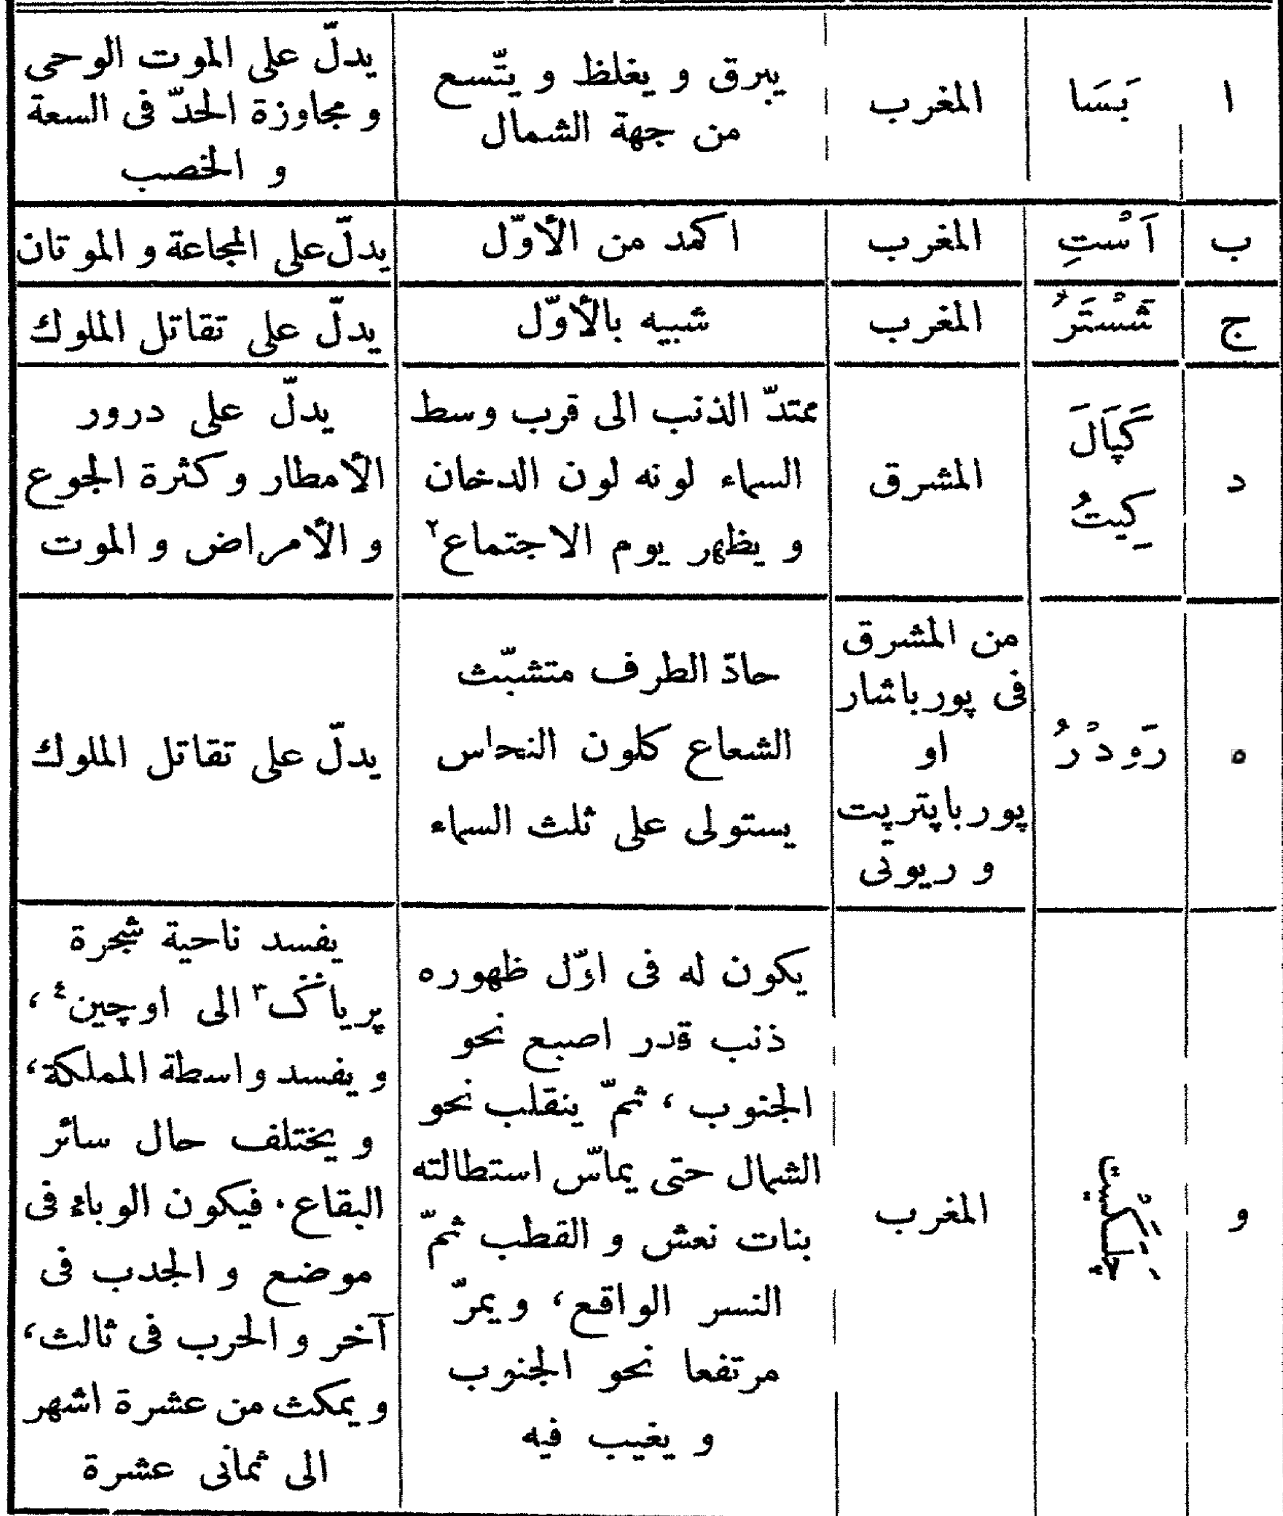 ا
بَسَا
المغرب
يبرق و يغلظ و يتّسع
من جهة الشمال
يدلّ على الموت الوحى
و مجاوزة الحدّ فى السعة
و الخصب
ب
اَسْتِ
المغرب
اكمد من الأوّل
يدلّ على المجاعة و الموتان
ج
شَسْتَرُ
المغرب
شبيه بالأوّل
يدلّ على تقاتل الملوك
د
كَپَالَ
كِيتُ
المشرق
ممتدّ الذنب الى قرب وسط
السماء لونه لون الدخان
و يظهر يوم الاجتماع٢
يدلّ على درور
الأمطار و كثرة الجوع
و الأمراض و الموت
ه
رَوِدْرُ
من المشرق
فى پورباشار
او
پورباپترپت
و ريوتى
حادّ الطرف متشبّث
الشعاع كلون النحاس
يستولى على ثلث السماء
يدلّ على تقاتل الملوك
و
چَلَكَيتْ
المغرب
يكون له فى اوّل ظهوره
ذنب قدر اصبع نحو
الجنوب ، ثمّ ينقلب نحو
الشمال حتى يماسّ استطالته
بنات نعش و القطب ثمّ
النسر الواقع، و يمرّ
مرتفعا نحو الجنوب
و يغيب فيه
يفسد ناحية شجرة
پرياگ٣ الى اوچين٤ ،
و يفسد واسطة المملكة،
و يختلف حال سائر
البقاع. فيكون الوباء فى
موضع و الجدب فى
آخر و الحرب فى ثالث،
و يمكث من عشرة اشهر
الى ثمانى عشرة